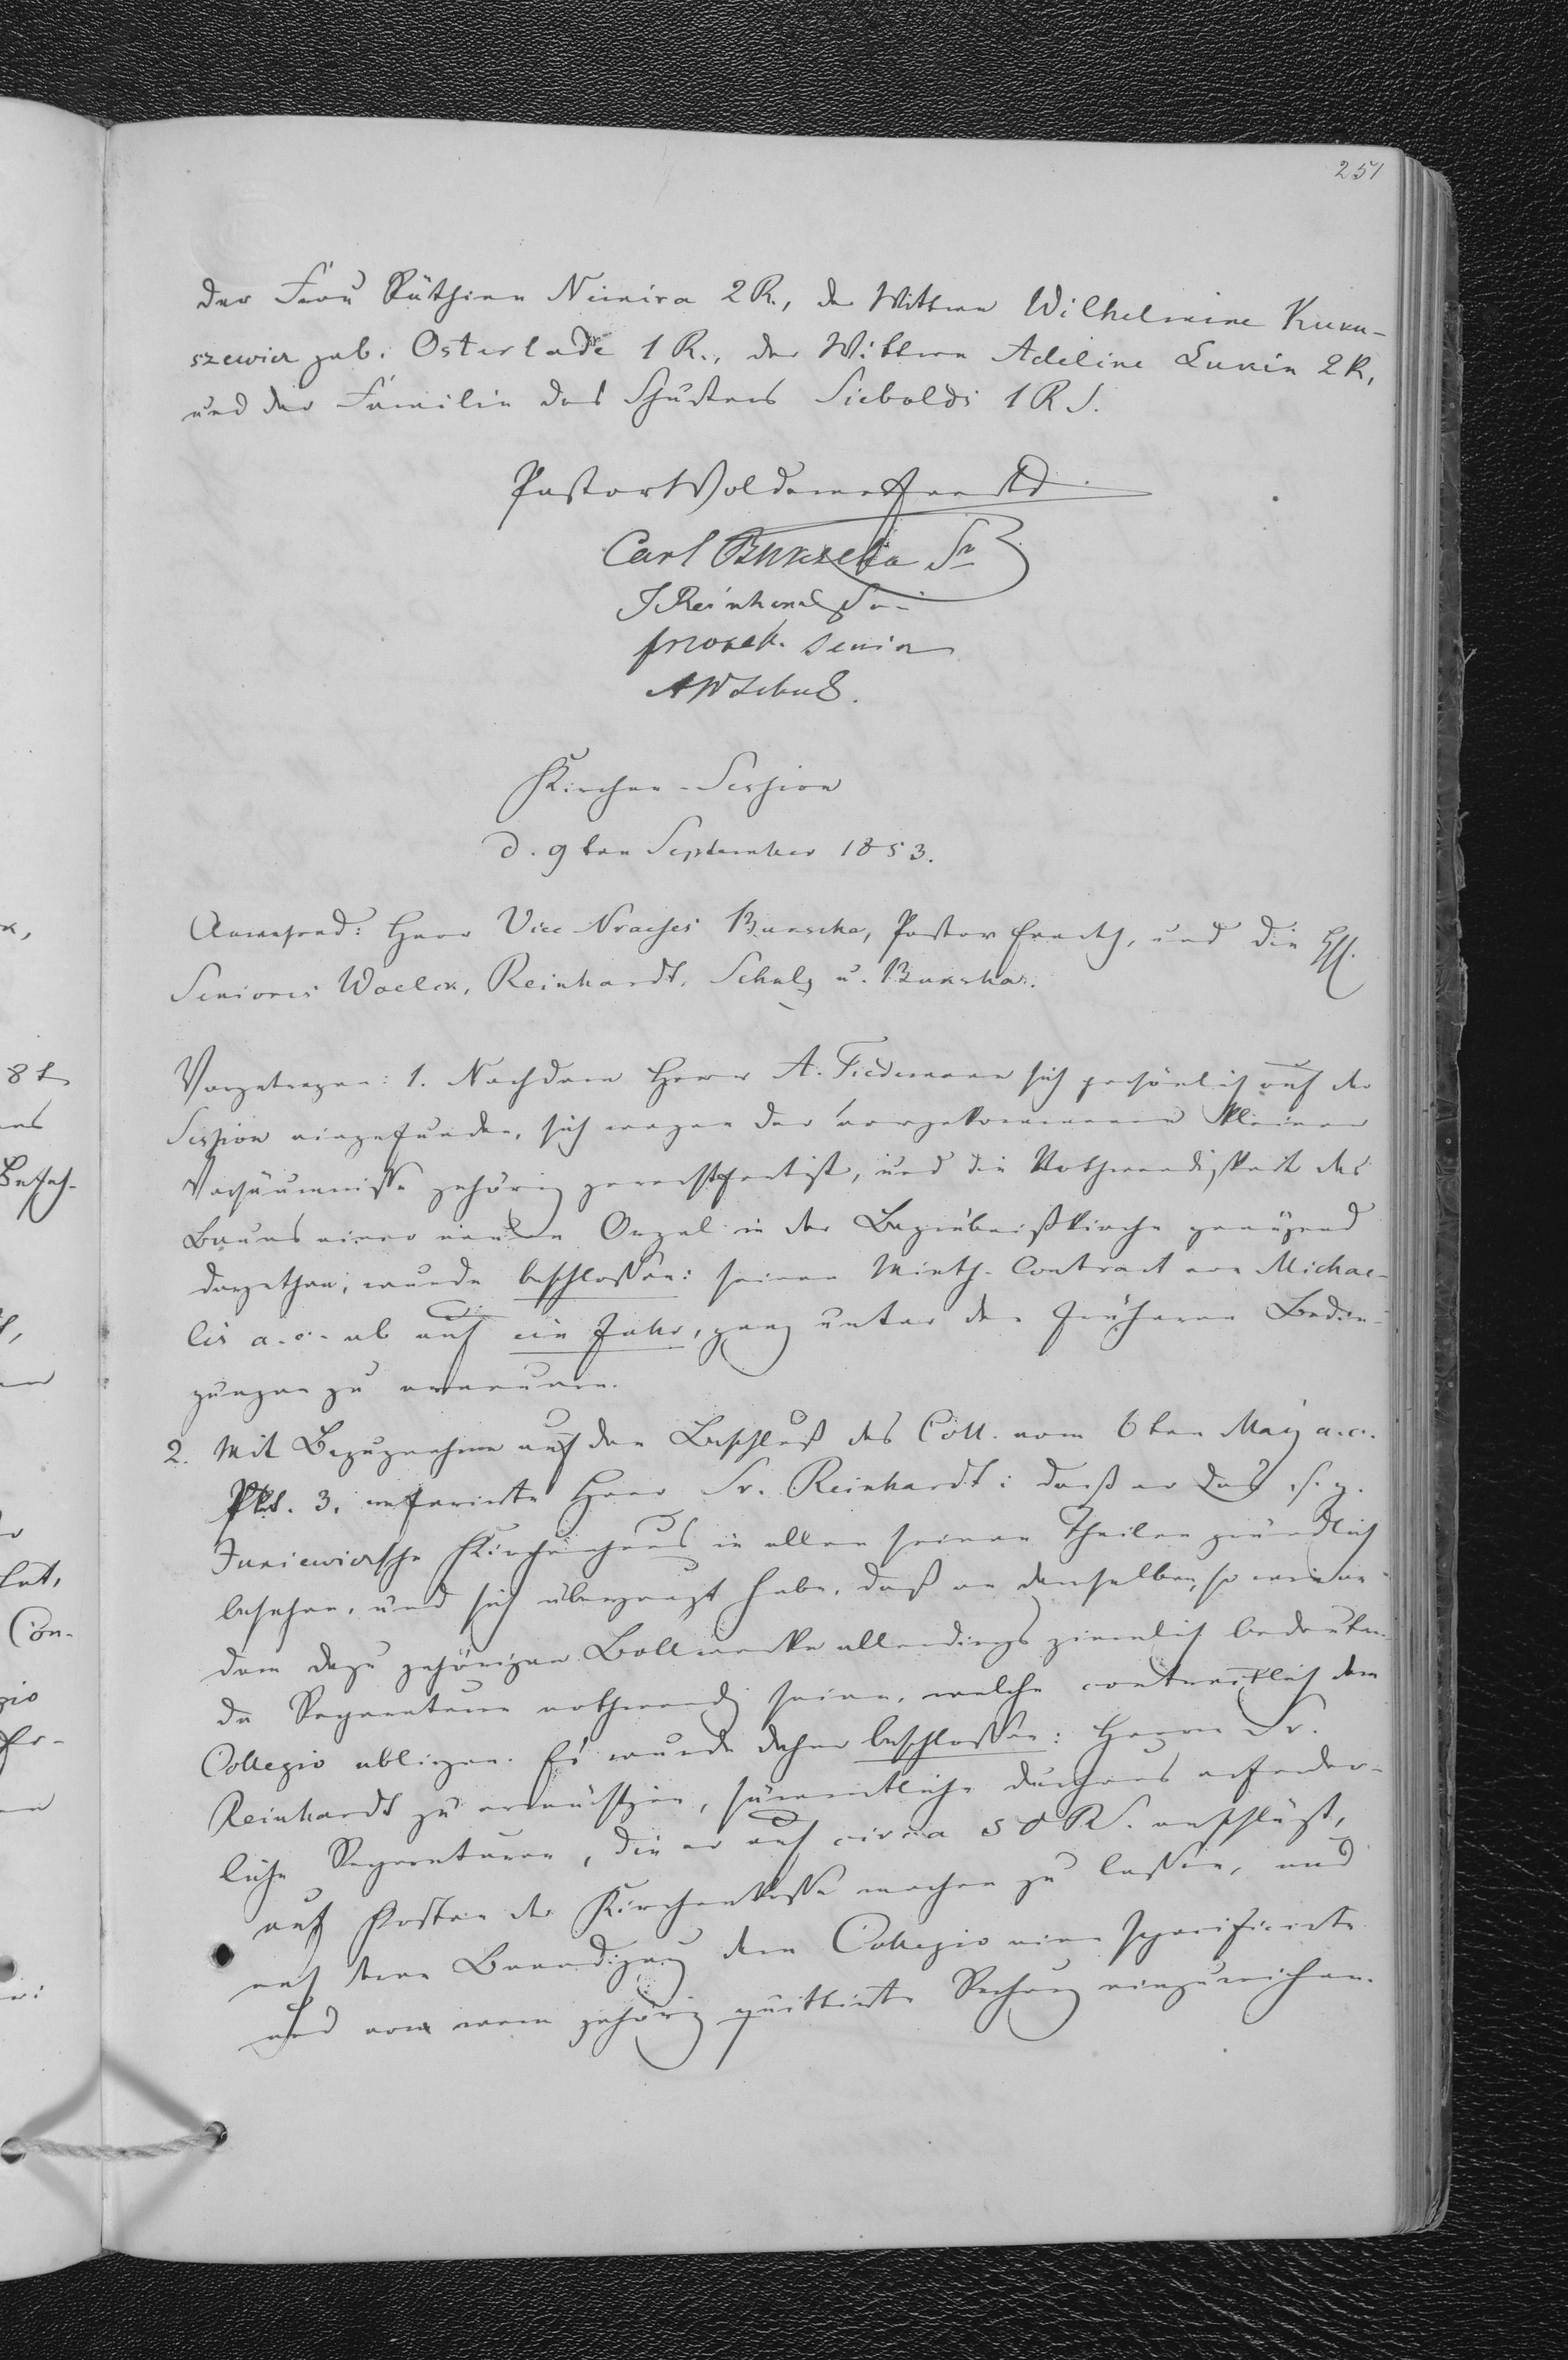 251
der Frau Räthinn Nimira 2 R., der Wittwe Wilhelmine Kunu-
szewicz geb. Osterlade 1 R., der Wittwe Adeline Lunin 2 R,
und der Familie des Schusters Siebold 1 R S.
Pastor Woldemar
Carl Sr
J Reinhardt Sr
Senior
A W Schulz.
Kirchen-Session
d. 9ten September 1853.
Anwesend: Herr Vice Praeses Bunscha, Pastor, und die HH.
Seniores Woelck, Reinhardt, Schulz u. Bunscha.
Vorgetragen: 1. Nachdem Herr A. Tiedemann sich persönlich auf der
Session eingefunden, sich wegen der vorgekommenen kleinen
Versäumnisse gehörig gerechtfertigt, und die Nothwendigkeit des
Baues einer neuen Orgel in der Begräbnißkirche genügend
dargethan, wurde beschlossen: seinen Mieth-Contract von Michae-
lis a. c. ab auf ein Jahr, ganz unter den früheren Bedin-
gungen zu erneuern.
2. Mit Bezugnahme auf den Beschluß des Coll. vom 6ten May a. c.
Pkt. 3. referirte Herr Sr. Reinhardt: daß er das s. g.
Juniewiczsche Kirchenhaus in allen seinen Theilen gründlich
besehen, und sich überzeugt habe, daß an demselben, so wie an
dem dazu gehörigen Bollwerke allerdings ziemlich bedeuten-
de Reparaturen nothwendig seien, welche contractlich dem
Collegio obliegen. Es wurde daher beschlossen: Herrn Sr.
Reinhardt zu ermächtigen, sämmtliche durchaus erforder-
liche Reparaturen, die er auf circa 50 R S. anschlägt,
auf Kosten der Kirchenkasse machen zu lassen, und
nach deren Beendigung dem Collegio eine specificirte
und von gehörig quittirte Rechnung einzureichen.